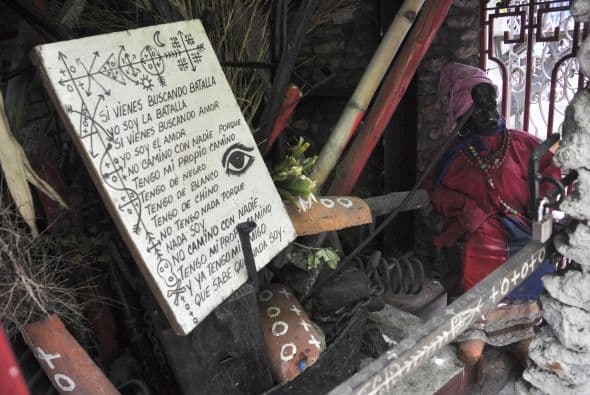 SI VIENES BUSCANDO BATALLA
YO SOY LA BATALLA
SI VIENES BUSCANDO AMOR
YO SOY EL AMOR
NO CAMINO CON NADIE PORQUE
TENGO MI PROPIO CAMINO
TENGO DE NEGRO
TENGO DE BLANCO
TENGO DE CHINO
NO TENGO NADA PORQUE
NADA SOY.
NO CAMINO CON NADIE
TENGO MI PROPIO CAMINO
Y YA TENGO MI AMIGO
QUE SABE QUE NADA SOY.